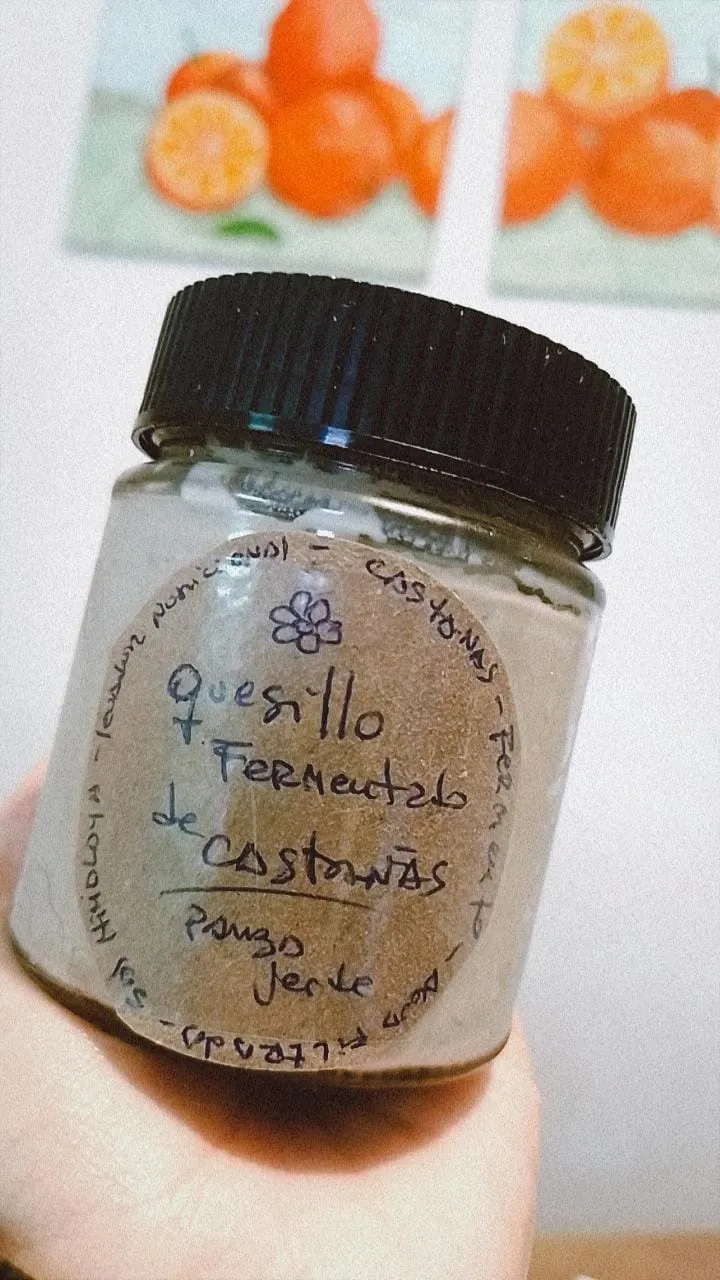 Quesillo
Fermentado
de
CASTAÑAS
PANZA
Verde
CASTAÑAS - FERMENTO - AGUA FILTRADA - SAL HIMALAYA - LEVADURA NUTRICIONAL -